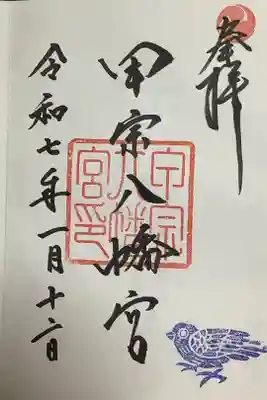 奉拝
甲宗八幡宮
令和七年一月十二日
甲宗
八幡
宮印